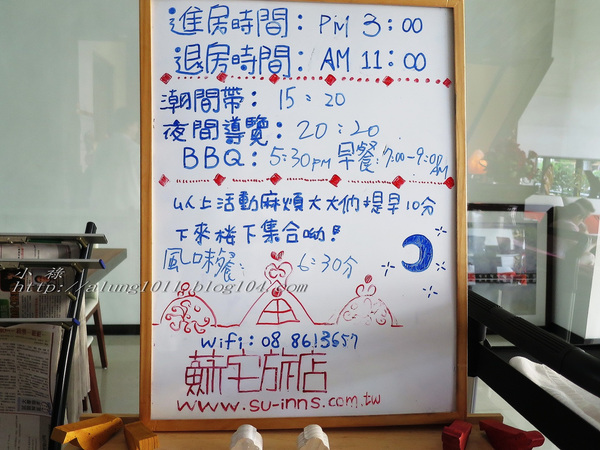 進房時間：PM 3：00
退房時間：AM 11：00
潮間帶：15：20
夜間導覽：20：20
BBQ：5:30pm 早餐：7:00-9:00 AM
以上活動麻煩大大們提早10分
下來樓下集合呦！
風味餐：6：30分
小祿
http://alung1011.blog104.com
wifi：08 8613657
蘇宅旅店
www.su-inns.com.tw